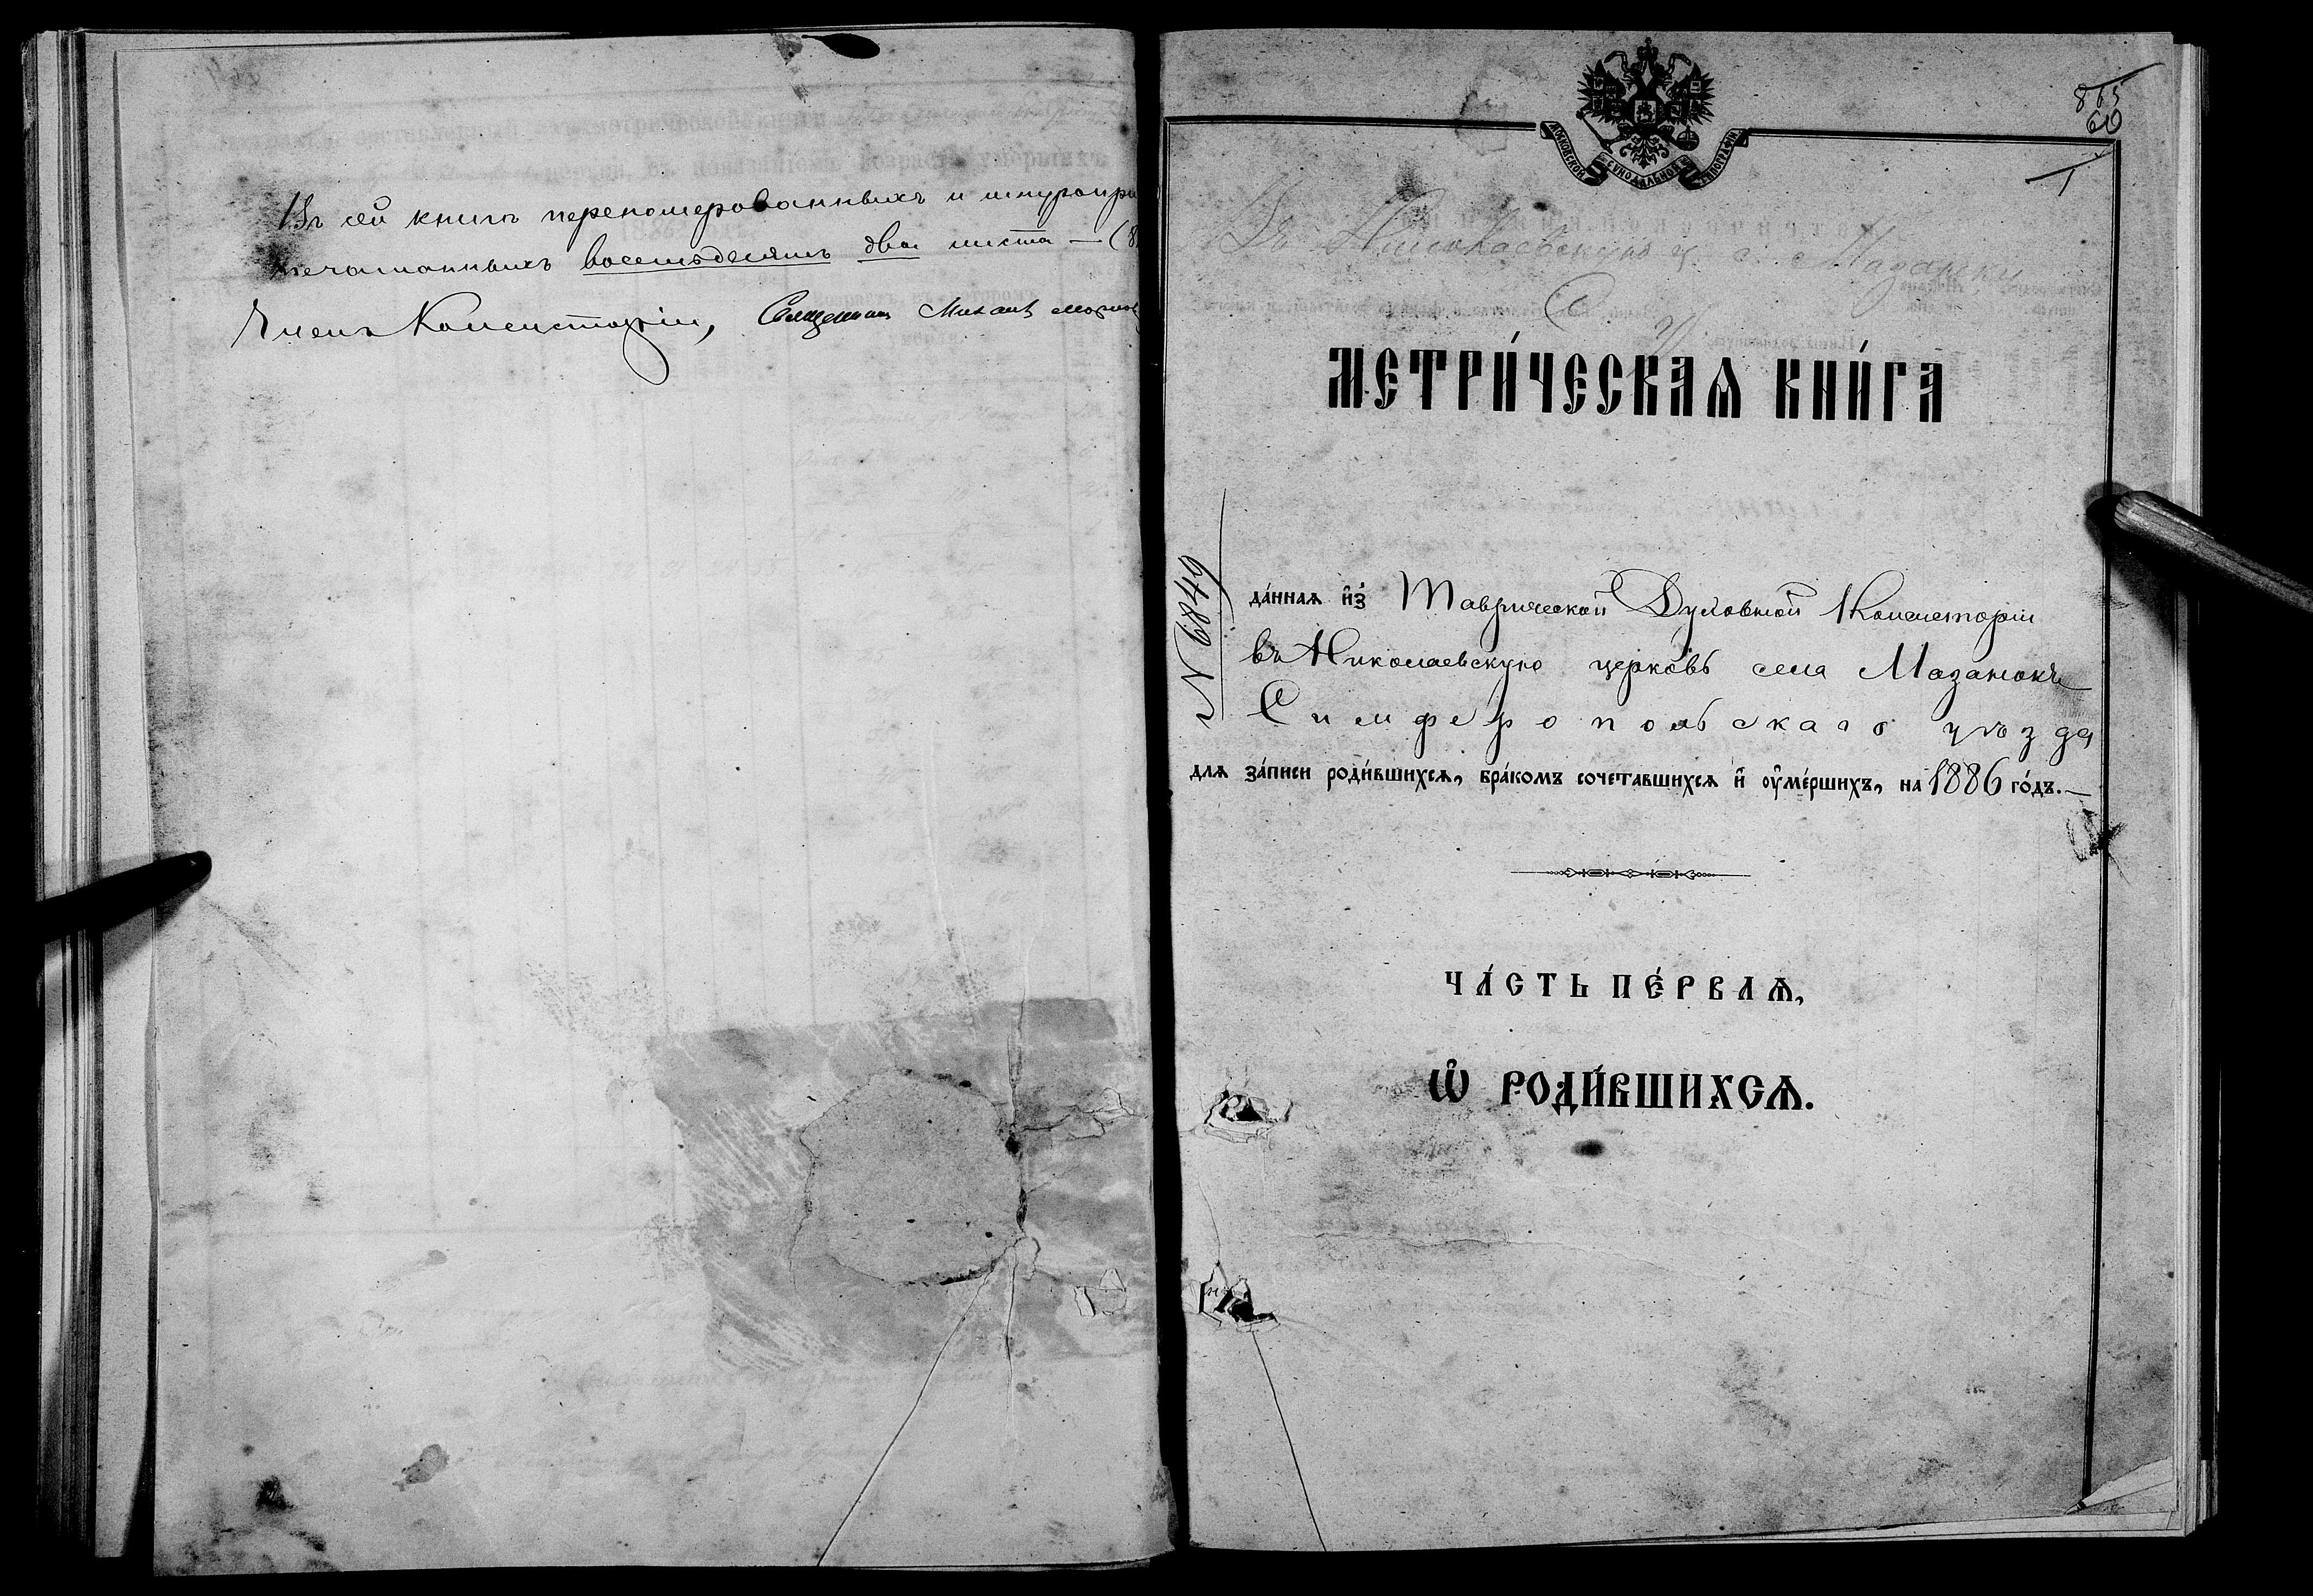 Въ сей книгѣ перенумерованныхъ и шнуропри
печатанныхъ восемьдесятъ два листа — (8
Членъ Консисторіи, Священникъ Михаилъ
865
60
1
МОСКОВСКОЙ СѴНОДАЛЬНОЙ ТИПОГРАФІИ
Въ Николаевскую ц. с. Мазанки
С. у.
МЕТРИ́ЧЕСКАѦ КНИ́ГА
№ 6849
да́ннаѧ и҆з̾ Таврической Духовной Консисторіи
въ Николаевскую церковь села Мазанокъ
Симферопольскаго уѣзда
для за́писи роди́вшихсѧ, бра́комъ сочета́вшихсѧ и҆ оу҆ме́ршихъ, на 1886 го́дъ.—
ЧА́СТЬ ПЕ́РВАѦ,
Ѡ҆ РОДИ́ВШИХСѦ.